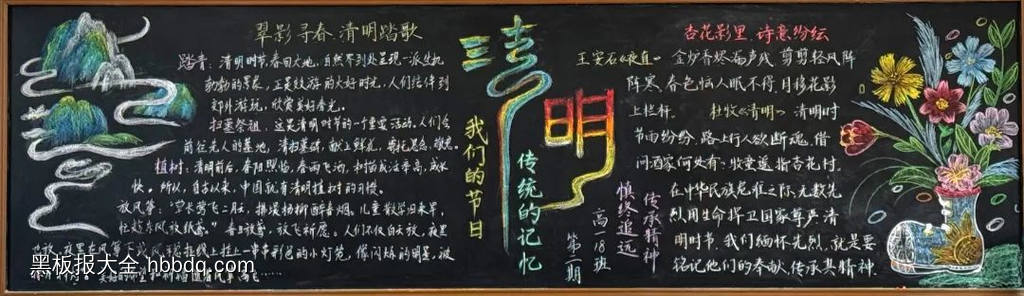 翠影寻春 清明踏歌
踏青：清明时节春回大地，自然界到处呈现一派生机
勃勃的景象，正是郊游的大好时光，人们结伴到
郊外游玩，欣赏美好春光。
扫墓祭祖，这是清明时节的一个重要活动，人们会
前往先人的墓地，清扫墓碑，献上鲜花，
植树：清明前后，春阳照临，春雨飞洒，种植成活率高，成长
快。所以，自古以来，中国就有清明植树的习惯。
放风筝："草长莺飞二月天，拂堤杨柳醉春烟，儿童散学归来早，
忙趁东风放纸鸢。"春日放筝，放飞祈愿。人们不仅白天放，夜里
也放，夜里在风筝下或拉线上挂上一串串彩色的小灯笼，像闪烁的明星，被
清
明
我们的节日
传统的记忆
高18班
第二期
慎终追远
传承精神
杏花影里，诗意纷纭
王安石《夜直》
金炉香烬漏声残，剪剪轻风阵
阵寒，春色恼人眠不得，月移花影
上栏杆。 杜牧《清明》 清明时
节雨纷纷，路上行人欲断魂，借
问酒家何处有？牧童遥指杏花村。
在中华民族危难之际无数先
烈用生命捍卫国家尊严清
明时节，我们缅怀先烈，就是要
铭记他们的奉献，传承其精神。
黑板报大全 hbbdq.com